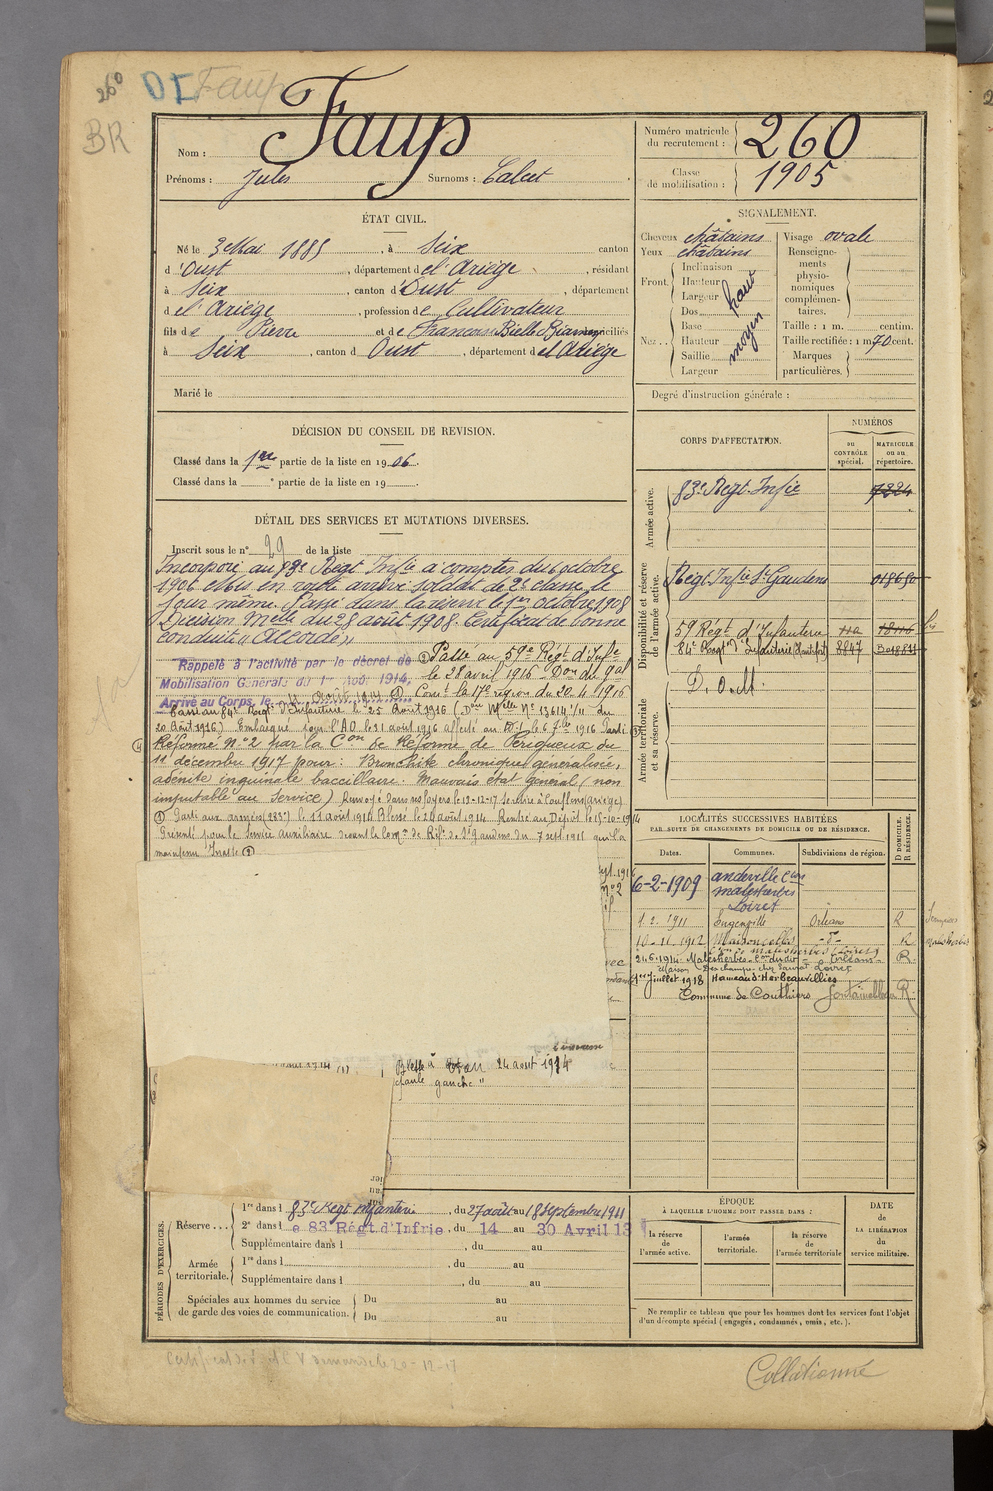 260 DI Faup
BR
Nom : Faup
Prénoms : Jules Surnoms : Calcet
Numéro matricule du recrutement : 260
Classe de mobilisation : 1905
ÉTAT CIVIL.
Né le 3 Mai 1885, à Seix canton
d'Oust, département de l'Ariège, résidant
à Seix, canton d'Oust, département
de l'Ariège, profession de Cultivateur
fils de Pierre et de Francoise Bielle Biamen domiciliés
à Seix, canton d Oust, département de l'Ariège
Marié le
SIGNALEMENT.
Cheveux châtains
Yeux châtains
Front. Inclinaison
Hauteur haut
Largeur
Nez.. Dos
Base
Hauteur moyen
Saillie
Largeur
Visage ovale
Renseignements physionomiques complémentaires.
Taille : 1 m. centim.
Taille rectifiée : 1 m 70 cent.
Marques particulières.
Degré d'instruction générale :
DÉCISION DU CONSEIL DE REVISION.
Classé dans la 1re partie de la liste en 1906.
Classé dans la e partie de la liste en 19
DÉTAIL DES SERVICES ET MUTATIONS DIVERSES.
Inscrit sous le n° 29 de la liste
Incorporé au 83e Régt Infie à compter du 6 octobre
1906 Mis en route arrivé soldat de 2e classe le
jour même. Passé dans la réserve le 1er octobre 1908
Décision Melle du 28 août 1908. Certificat de bonne
conduite "Accordé"
Rappelé à l'activité par le décret de
Mobilisation Générale du 1er Août 1914,
Arrivé au Corps, le 4 Août 1914
Passé au 59e Régt d'Infie
le 28 avril 1916 Don du Gal
Comt la 17e région du 20-4-1916
Passé au 84e Regt d'Infanterie le 25 Août 1916 (Don Melle N° 13614 1/11 du
20 Août 1916) Embarqué pour l'AO le 31 août 1916 affecté au le 6 7bre 1916 Parti
Réformé n° 2 par la Con de Réforme de Périgueux du
11 décembre 1917 pour : Bronchite chronique généralisée,
adénite inguinale baccillaire. Mauvais état Général (non
imputable au Service) Renvoyé dans ses foyers le 13-12-17 se retire à Couflens (Ariège)
Parti aux armées (283e) le 11 août 1914 Blessé le 24 août 1914 Rentré au Dépôt le 15-10-1914
Présenté pour le Service auxiliaire devant la Comon de Réfe de St Gaudens du 7 sept 1915 qui l'a
maintenu Inapte
Blessé à 24 août 1914
gauche "
CORPS D'AFFECTATION.
NUMÉROS
DU CONTRÔLE spécial.
MATRICULE ou au répertoire.
Armée active.
83e Régt Infie 7224
Disponibilité et réserve de l'armée active.
Régt Infie St Gaudens 018680
59 Régt d'Infanterie 11a 18116 bis
84e Régt d'Infanterie 8847
D. O. M.
Armée territoriale et sa réserve.
LOCALITÉS SUCCESSIVES HABITÉES
PAR SUITE DE CHANGEMENTS DE DOMICILE OU DE RÉSIDENCE.
Dates. Communes. Subdivisions de région. D DOMICILE. R RÉSIDENCE.
6-2-1909 andeville Con
malesherbes
Loiret
1. 2. 1911 Orléans R
10-11.1912 Maisoncelles -d°- R
24.6.1914 Malesherbes Con dudit Orléans R
1er Juillet 1918 Hameau d'Herbeauvilliers
Commune de Couthiers Fontainebleau R
PÉRIODES D'EXERCICES.
Réserve.... 1re dans l 83e Régt Infanterie, du 27 août au 18 Septembre 1911
2e dans l e 83 Régt d'Infrie, du 14 au 30 Avril 13
Supplémentaire dans l, du au
Armée territoriale. 1re dans l, du au
Supplémentaire dans l, du au
Spéciales aux hommes du service de garde des voies de communication. Du au
Du au
ÉPOQUE
À LAQUELLE L'HOMME DOIT PASSER DANS :
la réserve de l'armée active.
l'armée territoriale.
la réserve de l'armée territoriale
DATE de LA LIBÉRATION du service militaire.
Ne remplir ce tableau que pour les hommes dont les services font l'objet
d'un décompte spécial (engagés, condamnés, omis, etc.).
Collationné